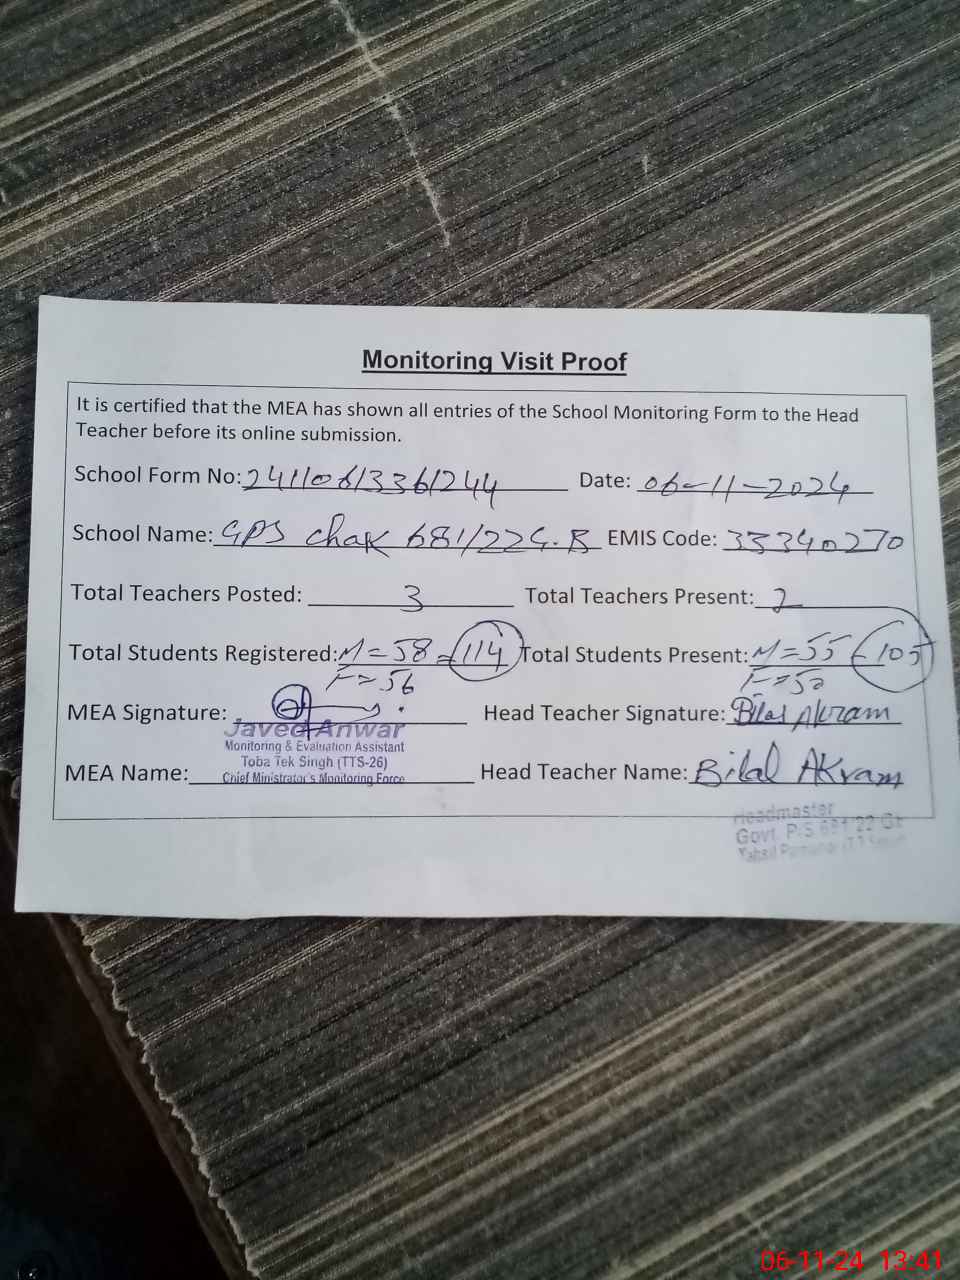 Monitoring Visit Proof
It is certified that the MEA has shown all entries of the School Monitoring Form to the Head
Teacher before its online submission.
School Form No: 24110613361244 Date: 06-11-2024
School Name: GPS chak 681/22G.B EMIS Code: 33340270
Total Teachers Posted: 3 Total Teachers Present: 2
Total Students Registered: M=58 =114 Total Students Present: M=55 =105
F=56 F=50
MEA Signature: Head Teacher Signature: Bilal Akram
Javed Anwar
Monitoring & Evaluation Assistant
Toba Tek Singh (TTS-26)
Chief Ministrator's Monitoring Force
MEA Name: Head Teacher Name: Bilal Akram
Headmaster
Govt. P/S 681 22 GB
06-11-24 13:41